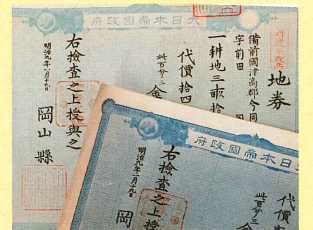 大日本帝國政府
地券
備前國津高郡今岡
字前田
一耕地三畝拾
代價拾四
此百分三 金
右檢査之上授與之
明治九年一月十九
岡山縣
大日本帝國政府
代價
此百分三 金
右檢査之上授
明治九年一月十九
岡